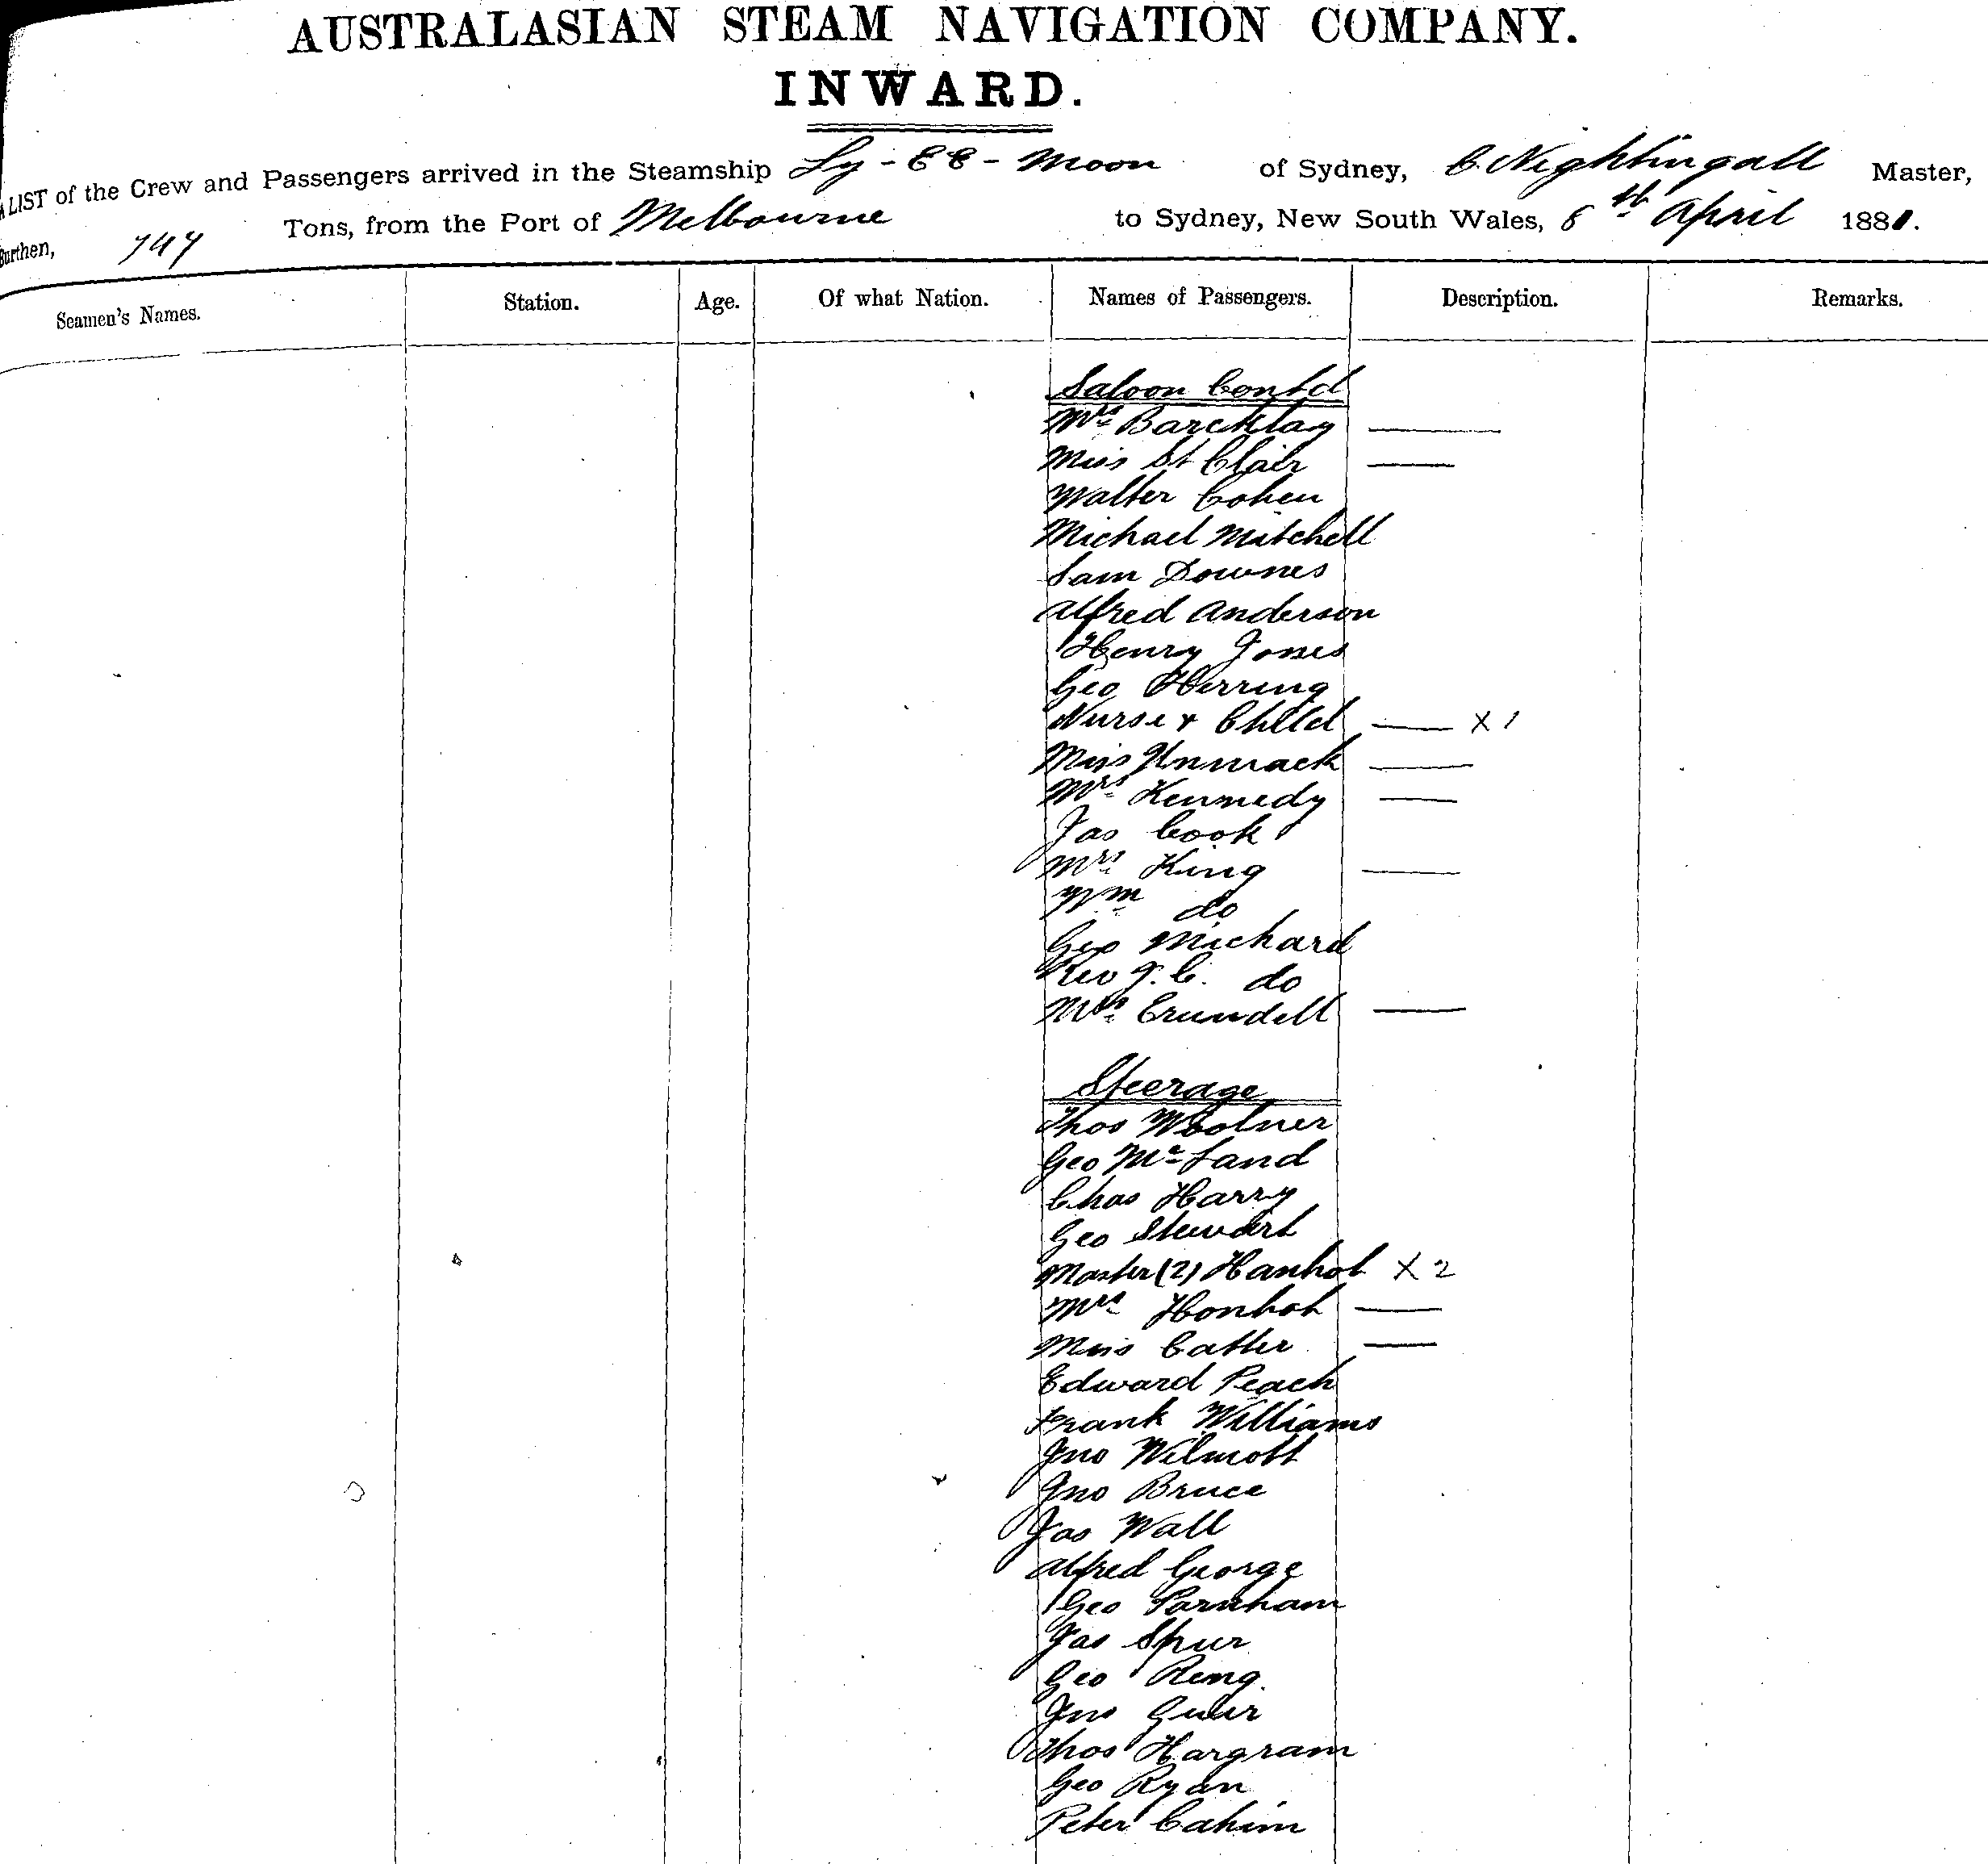 AUSTRALASIAN STEAM NAVIGATION COMPANY.
INWARD.
LIST of the Crew and Passengers arrived in the Steamship Ly-EE-Moon of Sydney, C. Nightingall Master,
Burthen, 747 Tons, from the Port of Melbourne to Sydney, New South Wales, 6th April 1881.
Seamen's Names. Station. Age. Of what Nation. Names of Passengers. Description. Remarks.
Saloon Contd
Mrs Barcklay ——
Miss St Clair ——
Walter Cohen
Michael Mitchell
Sam Downes
Alfred Anderson
Henry Jones
Geo Herring
Nurse + Child —— X 1
Miss Unmack ——
Mrs Kennedy ——
Jas Cook
Mrs King ——
Wm do
Geo Michard
Rev J. C. do
Mrs Crundell ——
Steerage
Thos Woolner
Geo Mc Land
Chas Harry
Geo Stewart
Master (2) Hanhot X 2
Mrs Honhot ——
Miss Catter ——
Edward Peach
Frank Williams
Jno Wilmott
Jno Bruce
Jas Wall
Alfred George
Geo Parnham
Jas Spur
Geo Ring
Jno
Thos Hargram
Geo Ryan
Peter Cahim